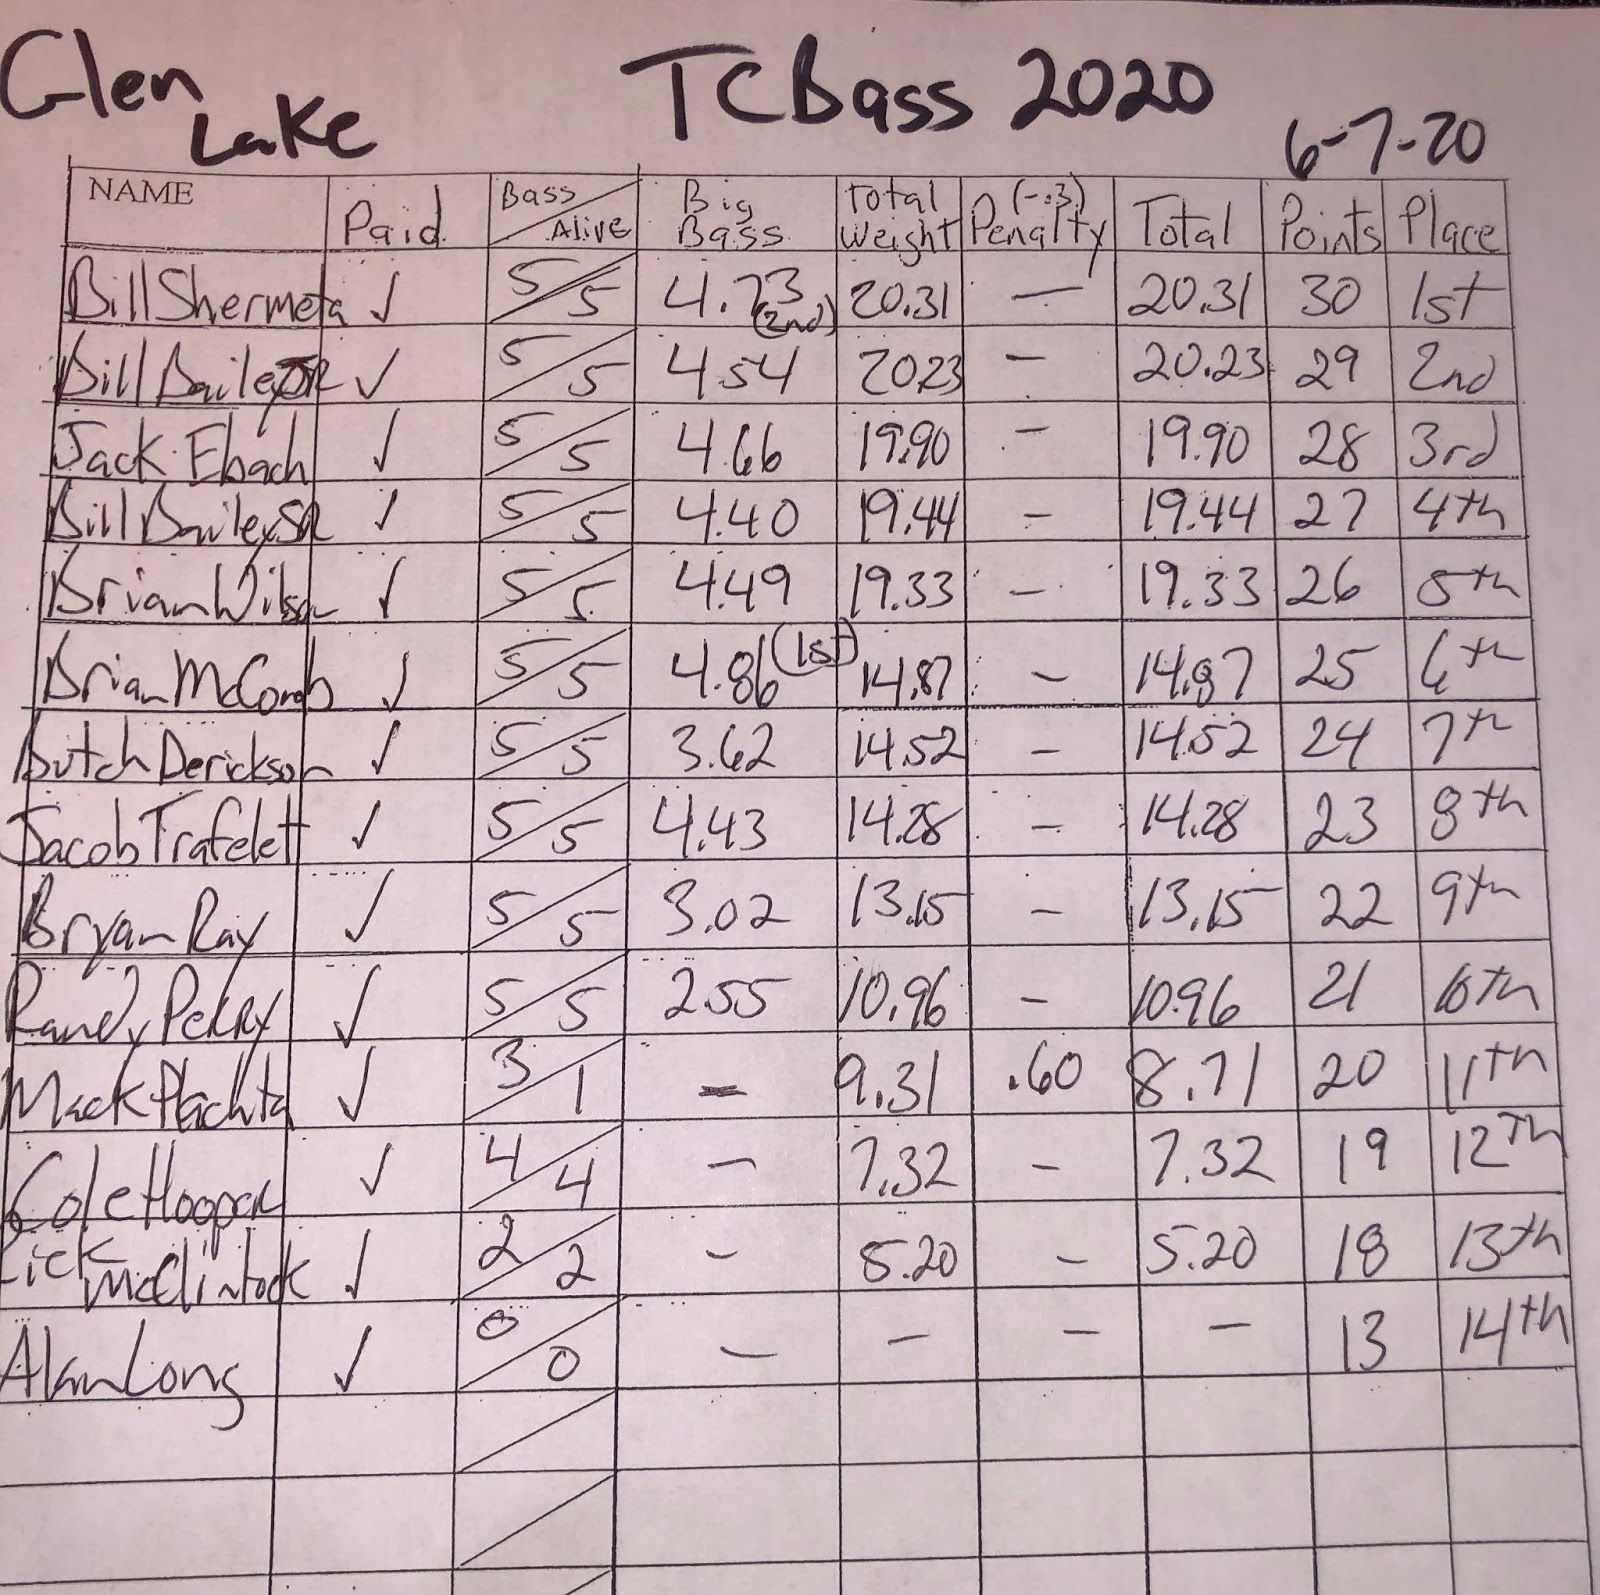 Glen Lake TCBass 2020
6-7-20
NAME Paid Bass/Alive Big Bass Total Weight (-.3) Penalty Total Points Place
Bill Shermeta ✓ 5/5 4.73 (2nd) 20.31 — 20.31 30 1st
Bill Bailey JR ✓ 5/5 4.54 20.23 — 20.23 29 2nd
Jack Ebach ✓ 5/5 4.66 19.90 - 19.90 28 3rd
Bill Bailey SR ✓ 5/5 4.40 19.44 - 19.44 27 4th
Brian Wilson ✓ 5/5 4.49 19.33 - 19.33 26 5th
Brian McComb ✓ 5/5 4.86 (1st) 14.87 - 14.87 25 6th
Butch Derickson ✓ 5/5 3.62 14.52 - 14.52 24 7th
Jacob Trafelet ✓ 5/5 4.43 14.28 - 14.28 23 8th
Bryan Ray ✓ 5/5 3.02 13.15 - 13.15 22 9th
Randy Perry ✓ 5/5 2.55 10.96 - 10.96 21 10th
Mack Plachta ✓ 3/1 - 9.31 .60 8.71 20 11th
Cole Hooper ✓ 4/4 - 7.32 - 7.32 19 12th
McClintock ✓ 2/2 - 5.20 - 5.20 18 13th
Alan Long ✓ 0/0 - - - - 13 14th